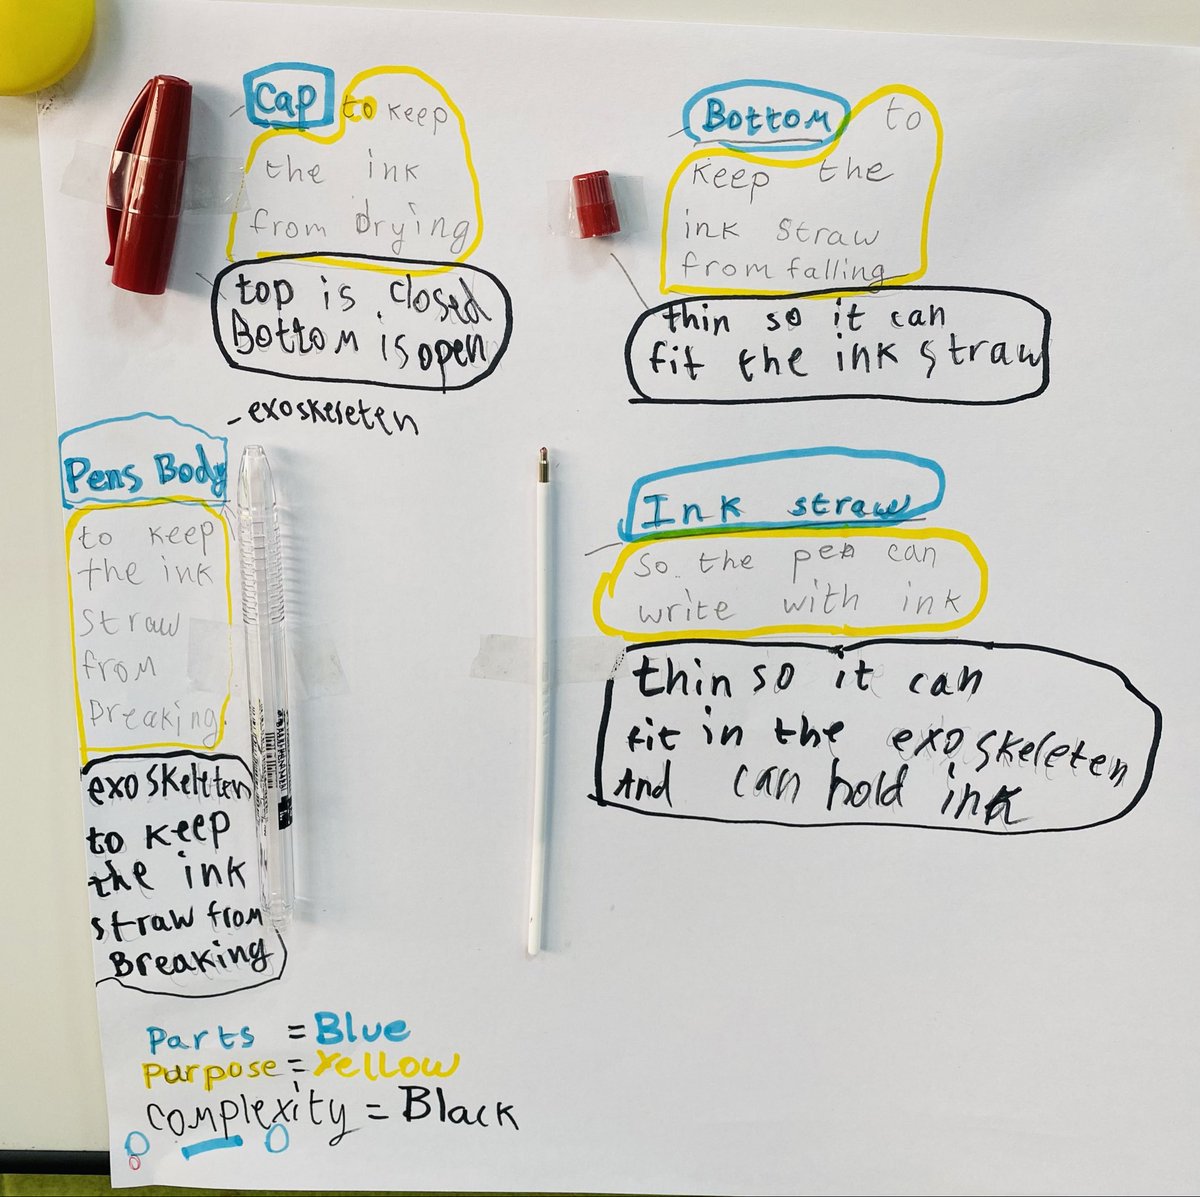 Cap to keep
the ink
from drying
top is closed
Bottom is open
Bottom to
keep the
ink straw
from falling
thin so it can
fit the ink straw
-exoskeleten
Pens Body
to keep
the ink
straw
from
breaking.
exoskeleten
to keep
the ink
straw from
Breaking
Ink straw
so the pen can
write with ink
thin so it can
fit in the exoskeleten
And can hold ink
Parts = Blue
Purpose = Yellow
complexity = Black